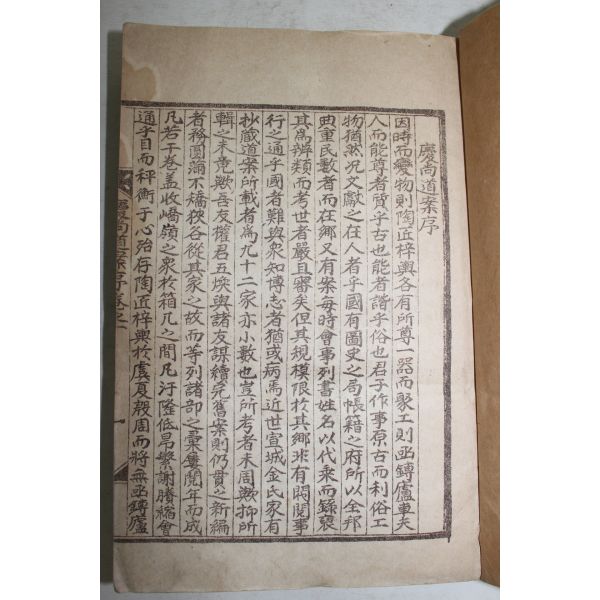 慶尚道案序
因時而變物則陶匠梓輿各有所尊一器而聚工則函鎛廬車夫
人而能尊者質乎古也能者諧乎俗也君子作事原古而利俗工
物猶然況文獻之在人者乎國有圖史之局帳籍之府所以全邦
典重民數者而在鄉又有案每時會事列書姓名以代乘而錄褒
其爲辨類而考世者嚴且審矣但其規模限於其鄉非有閥閱事
行之通乎國者難與衆知博志者猶或病焉近世宣城金氏家有
抄蔵道案所載者爲九十二家亦小數也豈所考者未周歟抑所
輯之未竟歟吾友權君五煥與諸友謀續完舊案則仍貫之新編
者務圓滿不矯狹各從其家之故而等列諸部之藁屢閱年而成
凡若干卷盖收嶠嶺之衆於箱几之間凡汙隆低昂繁謝騰縮會
通乎目而秤衡于心殆存陶匠梓輿於虞夏殷周而將無函鎛廬
慶尚道案序卷之一